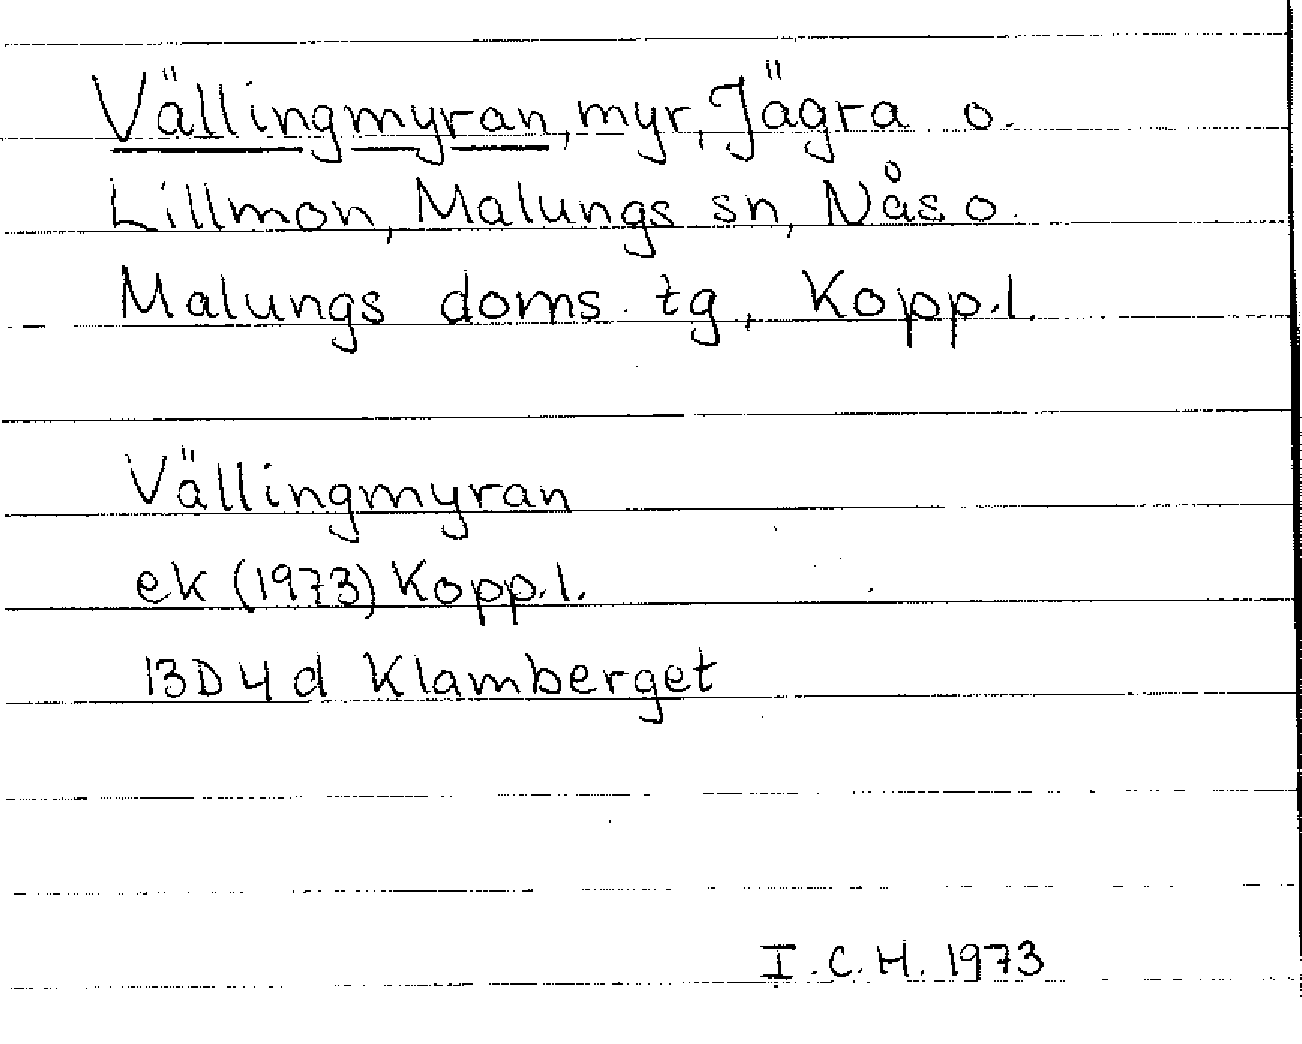 Vällingmyran, myr, Jägra o.
Lillmon, Malungs sn, Nås o.
Malungs doms. tg, Kopp.l.
Vällingmyran
ek (1973) Kopp.l.
13D4d Klamberget
I.C.H. 1973